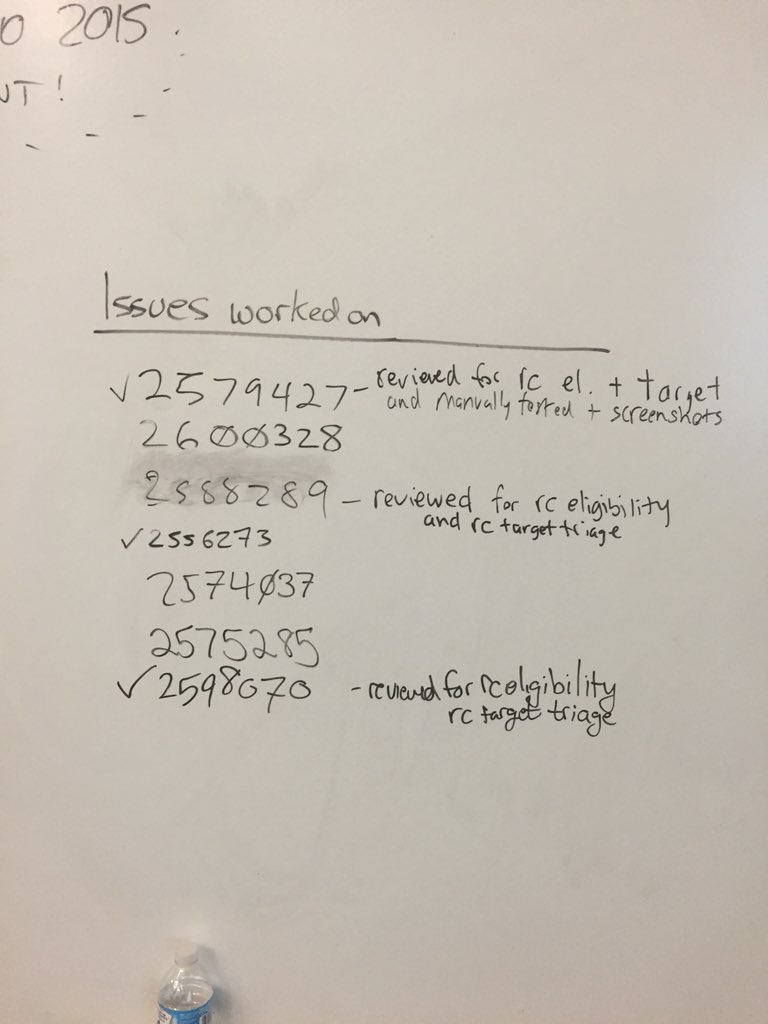 O 2015
UT!
Issues worked on
✓2579427 - reviewed for rc el. + target
and manually tested + screenshots
2600328
2588289 - reviewed for rc eligibility
and rc target triage
✓2556273
2574037
2575285
✓2598070 - reviewed for rc eligibility
rc target triage